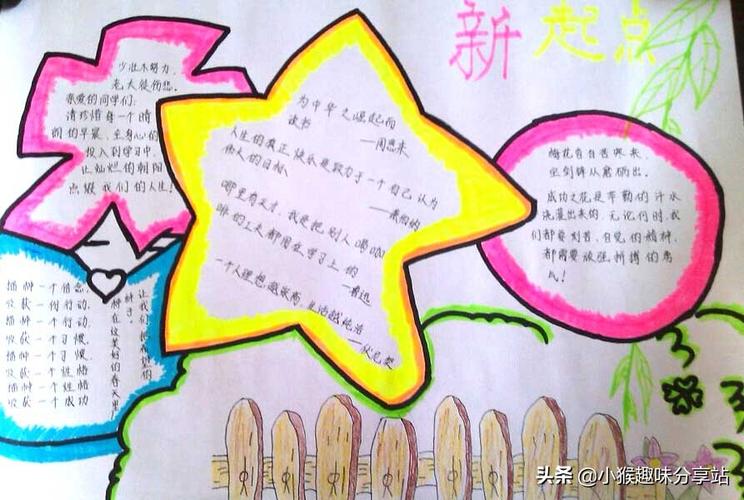 新起点
少壮不努力，
老大徒伤悲。
亲爱的同学们：
请珍惜每一个晴
朗的早晨，全身心的
投入到学习中，
让灿烂的朝阳
点缀我们的人生！
为中华之崛起而
读书
——周恩来
人生的真正快乐是致力于一个自己认为
伟大的目标。
——萧伯纳
哪里有天才，我是把别人喝咖
啡的工夫都用在学习上的
——鲁迅
一个人理想越崇高，生活越纯洁
——伏尼契
梅花香自苦寒来，
宝剑锋从磨砺出。
成功之花是辛勤的汗水
浇灌出来的，无论何时，我
们都要刻苦、自觉的精神，
都需要顽强拼搏的勇
气！
播种一个信念，
收获一份行动，
播种一个行动，
收获一个习惯，
播种一个习惯，
收获一个
播种一个
收获一个成功
让我们把希望的
种子，
种在这美好的春天里！
头条 @小猴趣味分享站